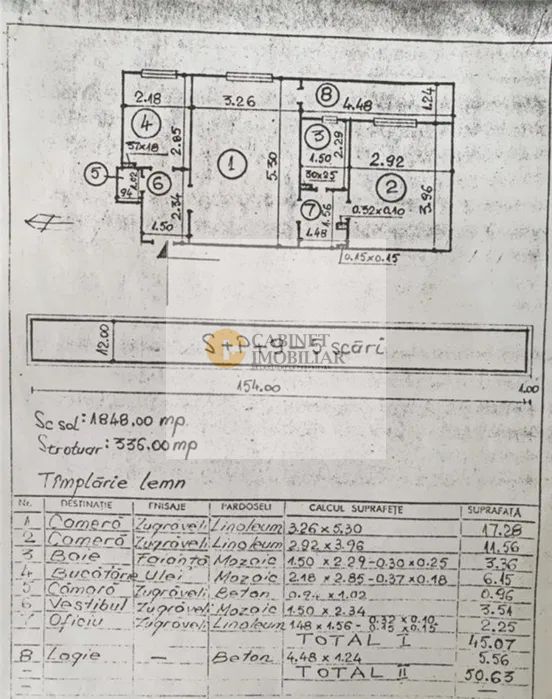 8
2.18
3.26
4.48
1.24
4
3
2.29
2.85
37x18
1.50
2.92
5
6
1.02
1
5.30
30x25
2
94
2.34
7
1.56
0.32x0.10
3.96
1.50
1.48
0.15x0.15
12.00
S+P+8E 5 scări
CABINET
IMOBILIAR
154.00
1.00
Sc sol: 1848.00 mp
S trotuar: 336.00 mp
Tîmplărie lemn
Nr. DESTINAȚIE FNISAJE PARDOSELI CALCUL SUPRAFEȚE SUPRAFAȚĂ
1 Cameră Zugrăveli Linoleum 3.26 x 5.30 17.28
2 Cameră Zugrăveli Linoleum 2.92 x 3.96 11.56
3 Baie Faianță Mozaic 1.50 x 2.29-0.30 x 0.25 3.36
4 Bucătărie Ulei Mozaic 2.18 x 2.85-0.37 x 0.18 6.15
5 Cămară Zugrăveli Beton 0.94 x 1.02 0.96
6 Vestibul Zugrăveli Mozaic 1.50 x 2.34 3.51
7 Oficiu Zugrăveli Linoleum 1.48 x 1.56 - 0.32 x 0.10 0.15 x 0.15 2.25
TOTAL I 45.07
8 Logie — Beton 4.48 x 1.24 5.56
TOTAL II 50.63